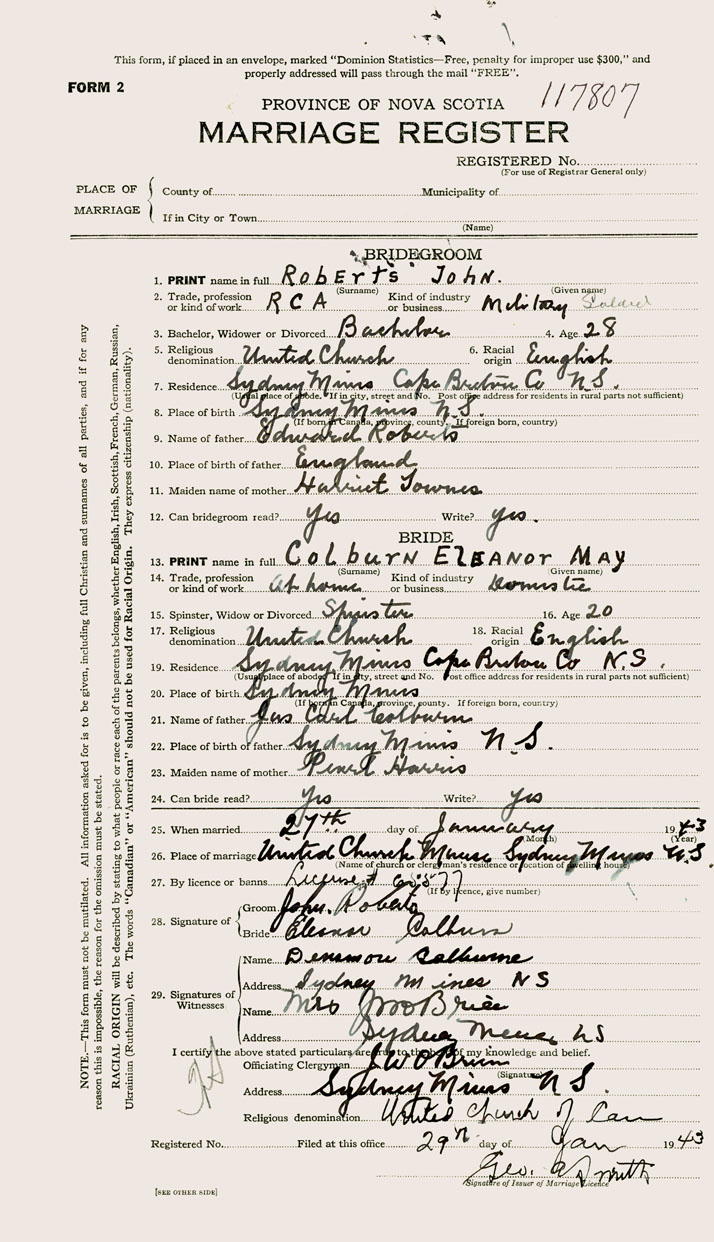 This form, if placed in an envelope, marked "Dominion Statistics—Free, penalty for improper use $300," and
properly addressed will pass through the mail "FREE".
FORM 2
PROVINCE OF NOVA SCOTIA 117807
MARRIAGE REGISTER
REGISTERED No.
(For use of Registrar General only)
PLACE OF MARRIAGE
County of Municipality of
If in City or Town
(Name)
BRIDEGROOM
1. PRINT name in full Roberts John.
(Surname) (Given name)
2. Trade, profession or kind of work RCA Kind of industry or business Military
3. Bachelor, Widower or Divorced Bachelor 4. Age 28
5. Religious denomination United Church 6. Racial origin English
7. Residence Sydney Mines Cape Breton Co N.S.
(Usual place of abode. If in city, street and No. Post office address for residents in rural parts not sufficient)
8. Place of birth Sydney Mines N.S.
(If born in Canada, province, county. If foreign born, country)
9. Name of father Edward Roberts
10. Place of birth of father England
11. Maiden name of mother Harriet Townes
12. Can bridegroom read? Yes Write? yes.
BRIDE
13. PRINT name in full Colburn Eleanor May
(Surname) (Given name)
14. Trade, profession or kind of work at home Kind of industry or business Domestic
15. Spinster, Widow or Divorced Spinster 16. Age 20
17. Religious denomination United Church 18. Racial origin English
19. Residence Sydney Mines Cape Breton Co N.S.
(Usual place of abode. If in city, street and No. Post office address for residents in rural parts not sufficient)
20. Place of birth Sydney Mines
(If born in Canada, province, county. If foreign born, country)
21. Name of father Jas Carl Colburn
22. Place of birth of father Sydney Mines N.S.
23. Maiden name of mother Pearl Harris
24. Can bride read? Yes Write? Yes
25. When married 27th day of January 1943
(Month) (Year)
26. Place of marriage United Church Manse Sydney Mines N.S.
(Name of church or clergyman's residence or location of dwelling house)
27. By licence or banns License #
(If by licence, give number)
28. Signature of
Groom John. Roberts
Bride Eleanor Colburn
29. Signatures of Witnesses
Name Densmore Colburne
Address Sydney Mines NS
Name Mrs J W O'Brien
Address Sydney Mines NS
I certify the above stated particulars are true to the best of my knowledge and belief.
Officiating Clergyman J W O'Brien
(Signature)
Address Sydney Mines N S.
Religious denomination United Church of Can
Registered No. Filed at this office 29th day of Jan 1943
Geo. Smith
Signature of Issuer of Marriage Licence
[SEE OTHER SIDE]
NOTE.—This form must not be mutilated. All information asked for is to be given, including full Christian and surnames of all parties, and if for any
reason this is impossible, the reason for the omission must be stated.
RACIAL ORIGIN will be described by stating to what people or race each of the parents belongs, whether English, Irish, Scottish, French, German, Russian,
Ukrainian (Ruthenian), etc. The words "Canadian" or "American" should not be used for Racial Origin. They express citizenship (nationality).